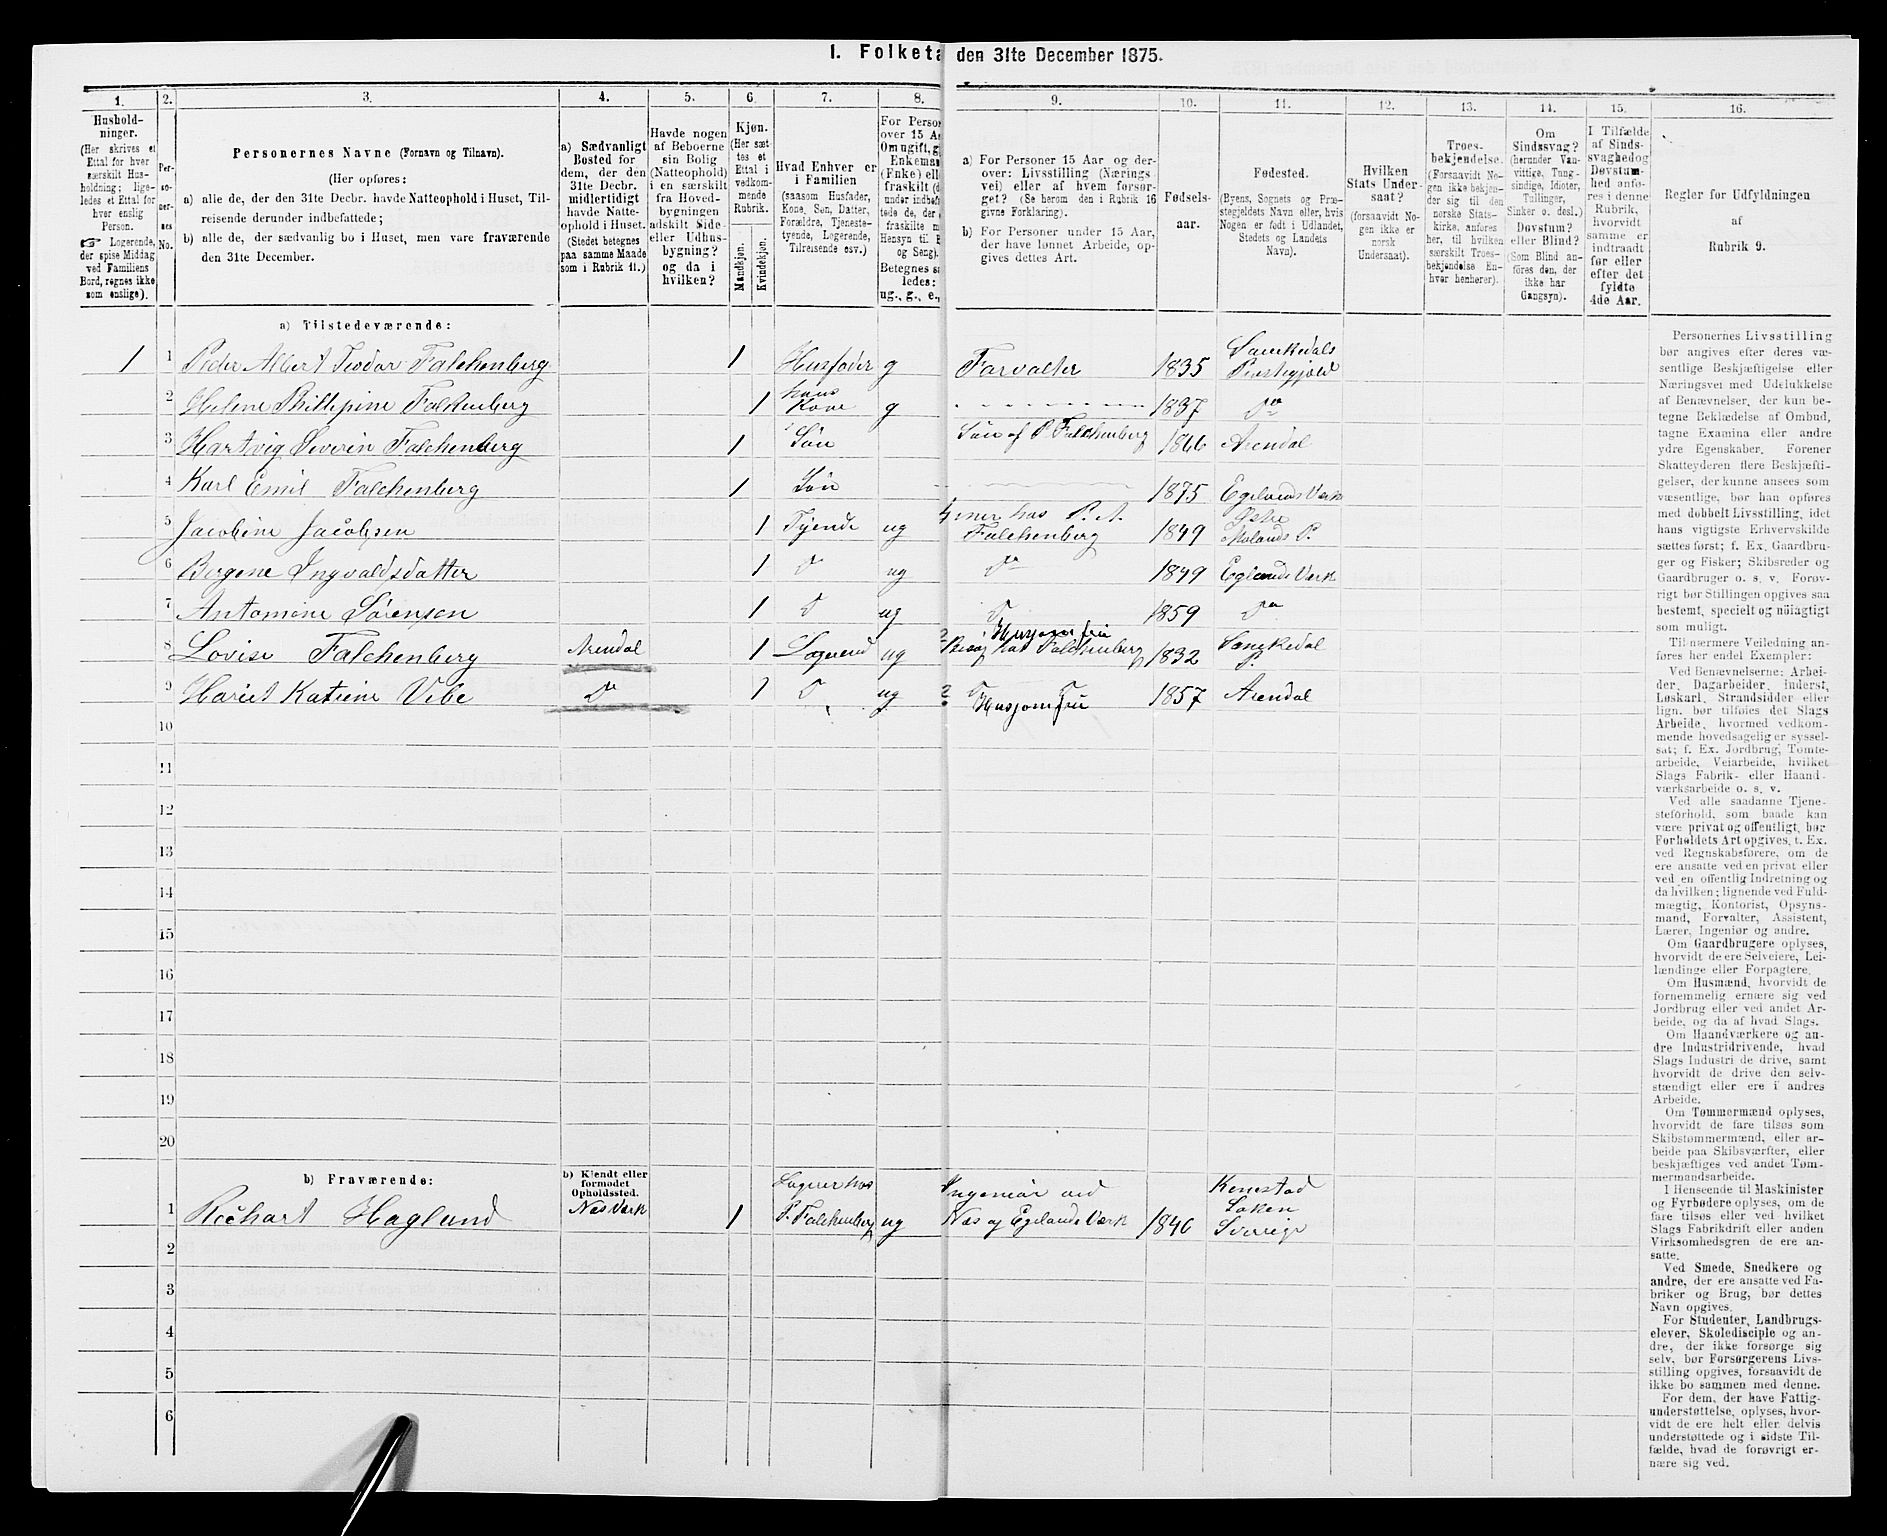 I. Folketa den 31te December 1875.
1. 2. 3. 4. 5. 6. 7. 8. 9. 10. 11. 12. 13. 14. 15. 16.
Hushold-
ninger.
(Her skrives et
Ettal for hver
særskilt Hus-
holdning; lige-
ledes et Ettal for
hver enslig
Person.
☞ Logerende,
der spise Middag
ved Familiens
Bord, regnes ikke
som enslige).
Per-
so-
ner-
nes
No.
Personernes Navne (Fornavn og Tilnavn).
(Her opføres:
a) alle de, der den 31te Decbr. havde Natteophold i Huset, Til-
reisende derunder indbefattede;
b) alle de, der sædvanlig bo i Huset, men vare fraværende
den 31te December.
a) Sædvanligt
Bosted for
dem, der den
31te Decbr.
midlertidigt
havde Natte-
ophold i Huset.
(Stedet betegnes
paa samme Maade
som i Rubrik 11.)
Havde nogen
af Beboerne
sin Bolig
(Natteophold)
i en særskilt
fra Hoved-
bygningen
adskilt Side-
eller Udhus-
bygning?
og da i
hvilken?
Kjøn.
(Her sæt-
tes et
Ettal i
vedkom-
mende
Rubrik.
Mandkjøn.
Kvindekjøn.
Hvad Enhver er
i Familien
(saasom Husfader,
Kone, Søn, Datter,
Forældre, Tjeneste-
tyende, Logerende,
Tilreisende osv.)
For Person
over 15 A
Om ugift, g
Enkema
(Enke) ell
fraskilt (d
under indbe
tede de, der
fraskilte m
Hensyn til B
og Seng).
Betegnes s
ledes:
ug., g., e.,
a) For Personer 15 Aar og der-
over: Livsstilling (Nærings-
vei) eller af hvem forsør-
get? (Se herom den i Rubrik 16
givne Forklaring).
b) For Personer under 15 Aar,
der have lønnet Arbeide, op-
gives dettes Art.
Fødsels-
aar.
Fødested.
(Byens, Sognets og Præ-
stegjeldets Navn eller, hvis
Nogen er født i Udlandet,
Stedets og Landets
Navn).
Hvilken
Stats Under-
saat?
(forsaavidt No-
gen ikke er
norsk
Undersaat).
Troes-
bekjendelse.
(Forsaavidt No-
gen ikke bekjen-
der sig til den
norske Stats-
kirke, anføres
her, til hvilken
særskilt Troes-
bekjendelse En-
hver henhører).
Om
Sindssvag?
(herunder Van-
vittige, Tung-
sindige, Idioter,
Tullinger,
Sinker o. desl.)
Døvstum?
eller Blind?
(Som Blind an-
føres den, der
ikke har
Gangsyn).
I Tilfælde
af Sinds-
svaghed og
Døvstum-
hed anfø-
res i denne
Rubrik,
hvorvidt
samme er
indtraadt
før eller
efter det
fyldte
4de Aar.
Regler for Udfyldningen
af
Rubrik 9.
a) Tilstedeværende:
1 1 Peder Albert Teodor Falchenberg 1 Husfader g Forvalter 1835 Sannikedals Præstegjeld
2 Helene Phillipine Falkenberg 1 hans Kone g 1837 Do
3 Hartvig Severin Falchenberg 1 Søn Søn af P Falchenberg 1866 Arendal
4 Karl Emil Falchenberg 1 Søn 1875 Egelands Værk
5 Jacobine Jacobsen 1 Tyende ug Tjener hos P. A. Falchenberg 1849 Østre Molands P.
6 Bergene Ingvaldsdatter 1 Do ug Do 1849 Eglands Værk
7 Antomine Sørensen 1 Do ug Do 1859 Do
8 Lovise Falchenberg Arendal 1 Logerend ug ? Husjomfru Besøg hos Falchenberg 1832 Sannikedal P.
9 Hariet Katrine Vibe Do 1 Do ug ? Do Do Husjomfru 1857 Arendal
10
11
12
13
14
15
16
17
18
19
20
b) Fraværende:
b) Kjendt eller
formodet
Opholdssted.
1 Richart Haglund Næs Værk 1 Logerer hos P. Falchenberg ug Ingeniør ved Næs og Egelands Værk 1846 Sverige
2
3
4
5
6
Personernes Livsstilling
bør angives efter deres væ-
sentlige Beskjæftigelse eller
Næringsvei med Udelukkelse
af Benævnelser, der kun be-
tegne Beklædelse af Ombud,
tagne Examina eller andre
ydre Egenskaber. Forener
Skatteyderen flere Beskjæfti-
gelser, der kunne ansees som
væsentlige, bør han opføres
med dobbelt Livsstilling, idet
hans vigtigste Erhvervskilde
sættes først; f. Ex. Gaardbru-
ger og Fisker; Skibsreder og
Gaardbruger o. s. v. Forøv-
rigt bør Stillingen opgives saa
bestemt, specielt og nøiagtigt
som muligt.
Til nærmere Veiledning an-
føres her endel Exempler:
Ved Benævnelserne: Arbei-
der, Dagarbeider, inderst,
Løskarl, Strandsidder eller
lign. bør tilføies det Slags
Arbeide, hvormed vedkom-
mende hovedsagelig er syssel-
sat; f. Ex. Jordbrug, Tomte-
arbeide, Veiarbeide, hvilket
Slags Fabrik- eller Haand-
værksarbeide o. s. v.
Ved alle saadanne Tjene-
steforhold, som baade kan
være privat og offentligt, bør
Forholdets Art opgives, t. Ex.
ved Regnskabsførere, om de
ere ansatte ved en privat eller
ved en offentlig Indretning og
da hvilken; lignende ved Fuld-
mægtig, Kontorist, Opsyns-
mand, Forvalter, Assistent,
Lærer, Ingeniør og andre.
Om Gaardbrugere oplyses,
hvorvidt de ere Selveiere, Lei-
lændinge eller Forpagtere.
Om Husmænd, hvorvidt de
fornemmelig ernære sig ved
Jordbrug eller ved andet Ar-
beide, og da af hvad Slags.
Om Haandværkere og an-
dre Industridrivende, hvad
Slags Industri de drive, samt
hvorvidt de drive den selv-
stændigt eller ere i andres
Arbeide.
Om Tømmermænd oplyses,
hvorvidt de fare tilsøs som
Skibstømmermænd, eller ar-
beide paa Skibsværfter, eller
beskjæftiges ved andet Tøm-
mermandsarbeide.
I Henseende til Maskinister
og Fyrbødere oplyses, om de
fare tilsøs eller ved hvilket
Slags Fabrikdrift eller anden
Virksomhedsgren de ere an-
satte.
Ved Smede, Snedkere og
andre, der ere ansatte ved Fa-
briker og Brug, bør dettes
Navn opgives.
For Studenter, Landbrugs-
elever, Skoledisciple og an-
dre, der ikke forsørge sig
selv, bør Forsørgerens Livs-
stilling opgives, forsaavidt de
ikke bo sammen med denne.
For dem, der have Fattig-
understøttelse, oplyses, hvor-
vidt de ere helt eller delvis
understøttede og i sidste Til-
fælde, hvad de forøvrigt er-
nære sig ved.